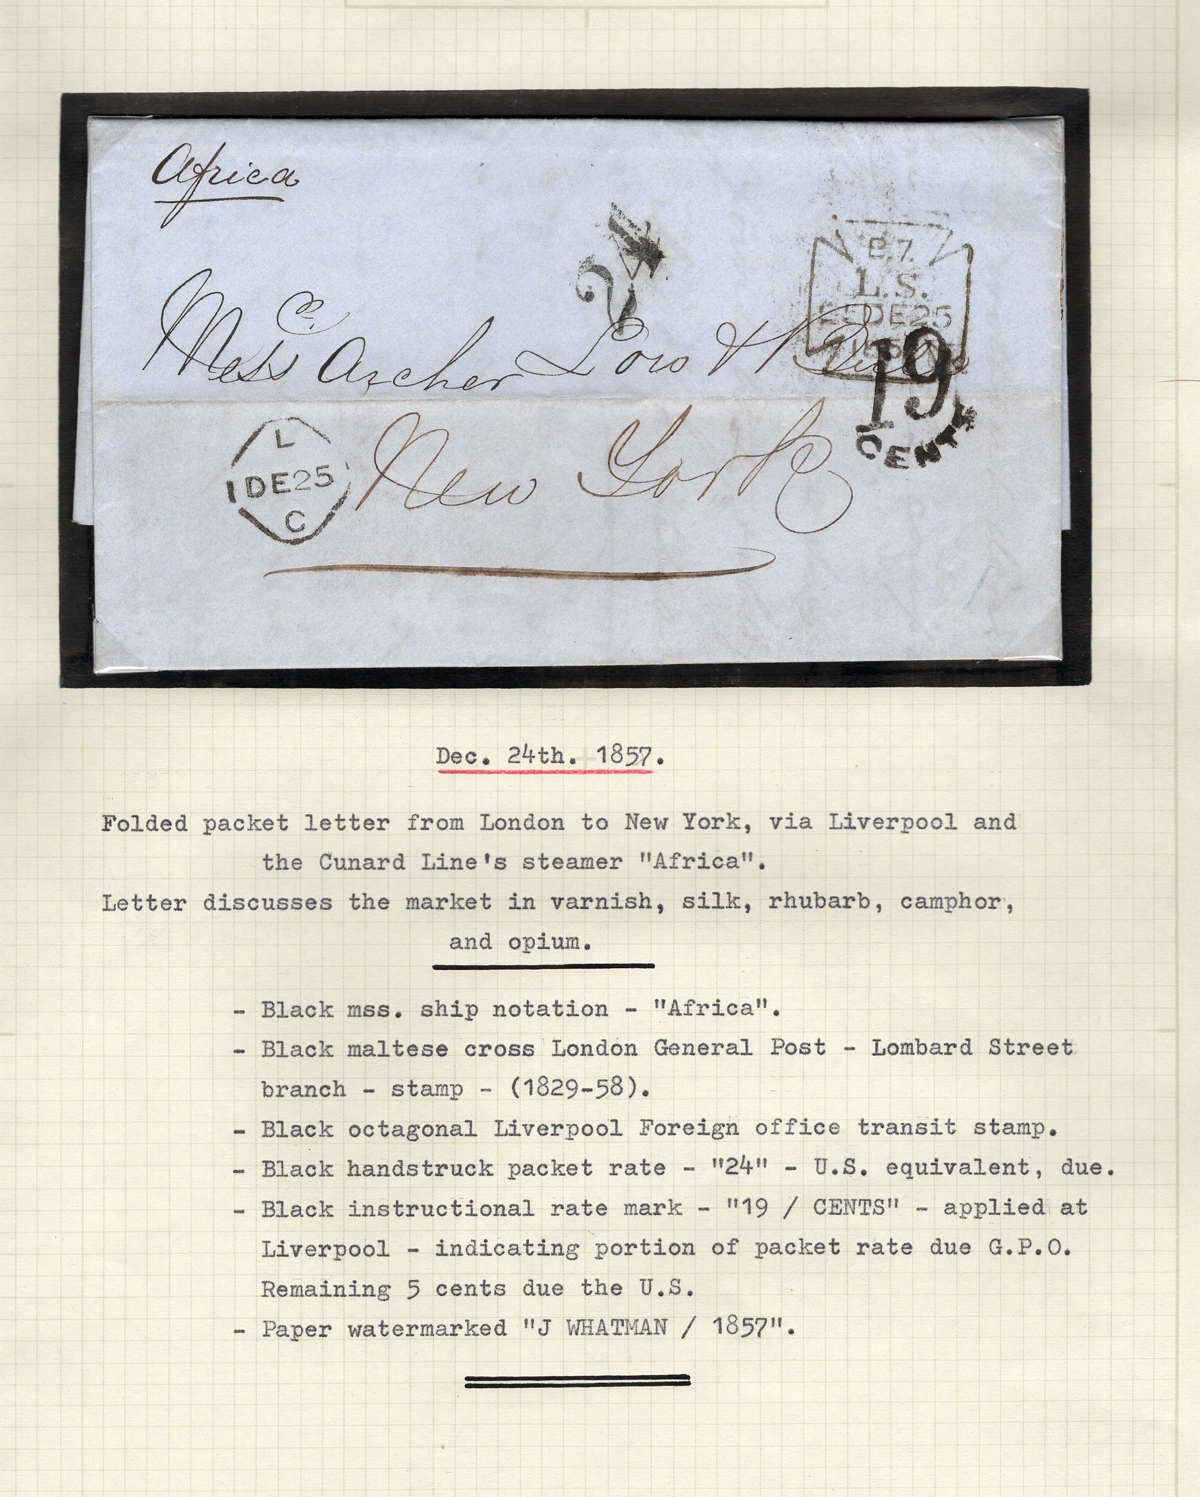 Africa
24
B.7.
L.S.
25DE25
Messrs Archer Low &
19
CENTS
New York
L
1DE25
C
Dec. 24th. 1857.
Folded packet letter from London to New York, via Liverpool and
the Cunard Line's steamer "Africa".
Letter discusses the market in varnish, silk, rhubarb, camphor,
and opium.
- Black mss. ship notation - "Africa".
- Black maltese cross London General Post - Lombard Street
branch - stamp - (1829-58).
- Black octagonal Liverpool Foreign office transit stamp.
- Black handstruck packet rate - "24" - U.S. equivalent, due.
- Black instructional rate mark - "19 / CENTS" - applied at
Liverpool - indicating portion of packet rate due G.P.O.
Remaining 5 cents due the U.S.
- Paper watermarked "J WHATMAN / 1857".